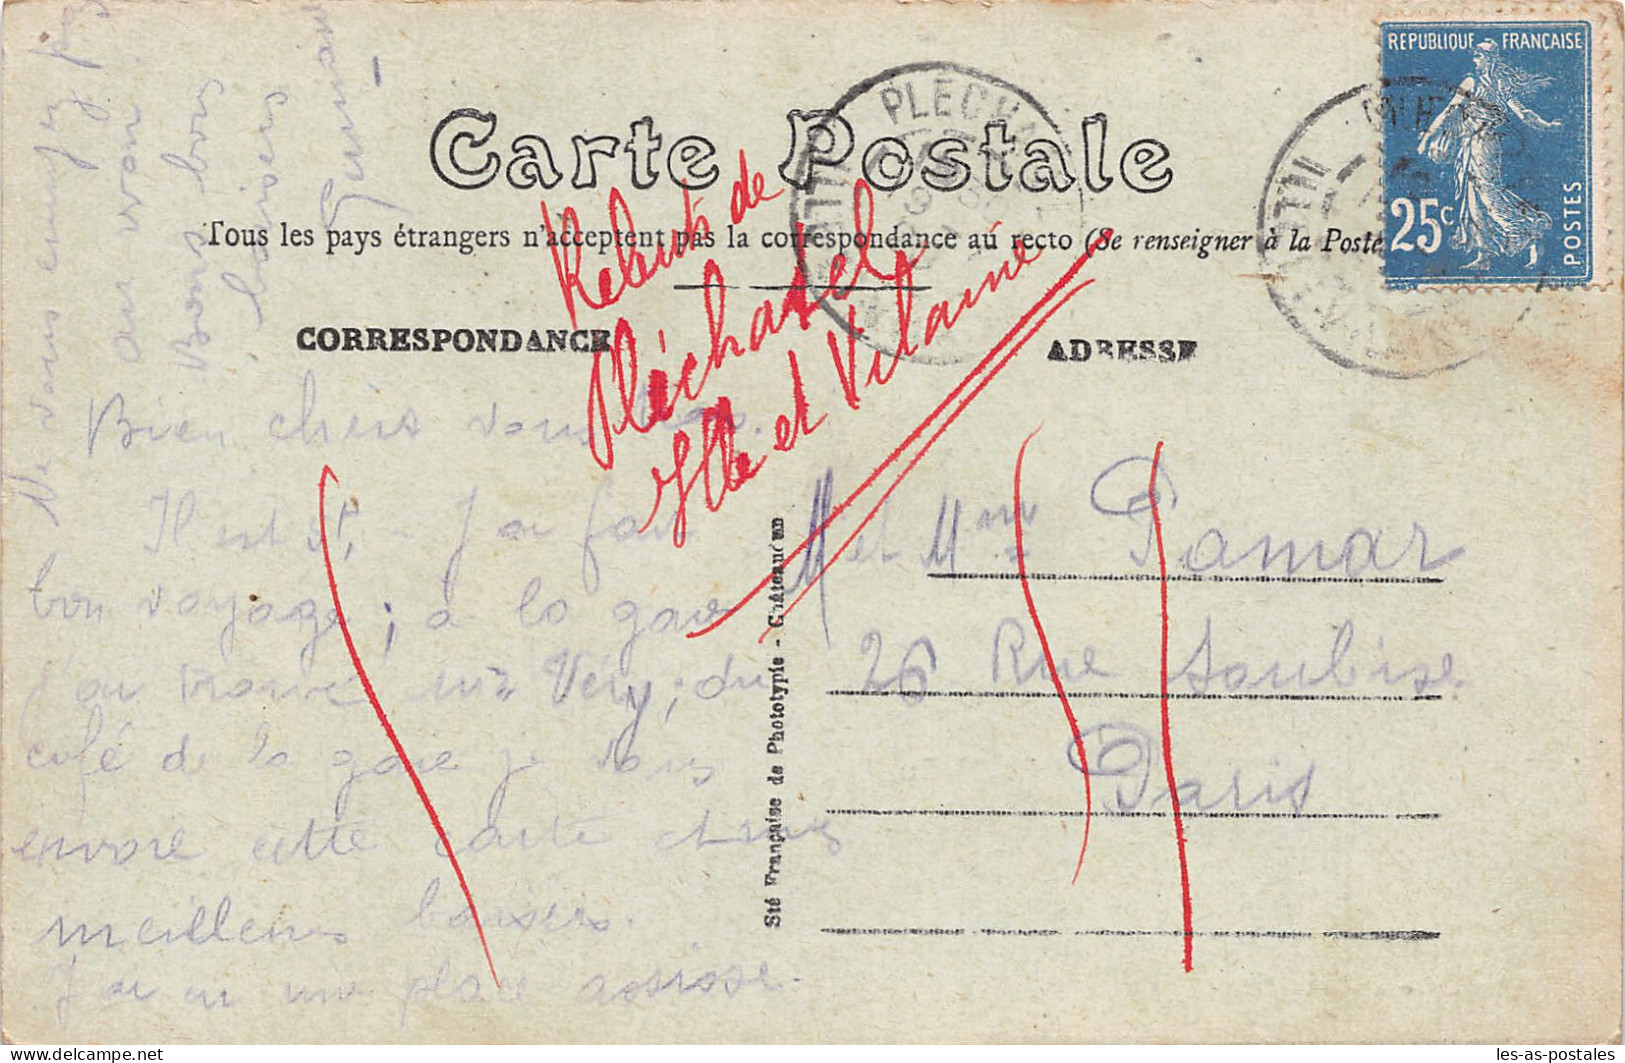 RÉPUBLIQUE FRANÇAISE
25c
POSTES
PLECH
ILLE
Carte Postale
Tous les pays étrangers n'acceptent pas la correspondance au recto (Se renseigner à la Poste
CORRESPONDANCE
ADRESSE
Rebuts de
Pléchatel
Ille et Vilaine
Bien chers vous
Il est
J'ai fait
bon voyage ; à la gare
j'ai trouvé Mr Véry ; du
café de la gare je vous
envoie cette carte et mes
meilleurs baisers.
J'ai eu une place assise.
Ne vous ennuyez pas
au revoir
Bons
baisers
M et Mme Pamar
26 Rue Soubise
Paris
Sté Française de Phototypie - Châteaudun
les-as-postales
delcampe.net